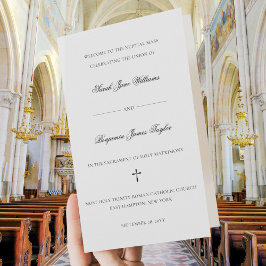 WELCOME TO THE NUPTIAL MASS
CELEBRATING THE UNION OF
Sarah Jane Williams
AND
Benjamin James Taylor
IN THE SACRAMENT OF HOLY MATRIMONY
MOST HOLY TRINITY ROMAN CATHOLIC CHURCH
EASTHAMPTON, NEW YORK
SEPTEMBER